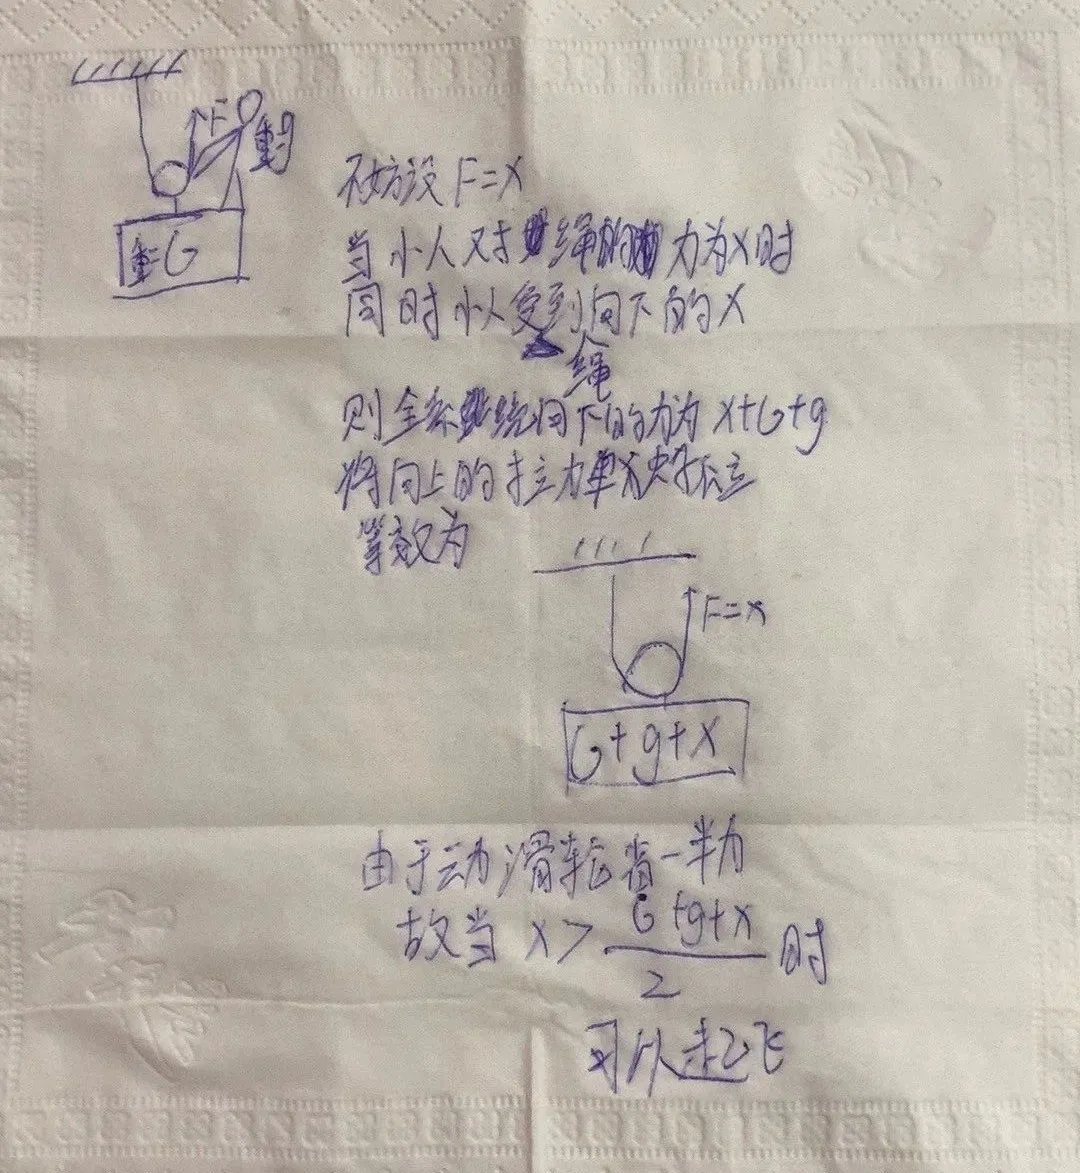 F 重g
重=G
不妨设 F=X
当小人对绳的力为X时
同时小人受到向下的X
绳
则全系统向下的力为 X+G+g
将向上的拉力单独孤立
等效为
F=X
G+g+X
由于动滑轮省一半力
故当 X> G+g+X / 2 时
可以起飞